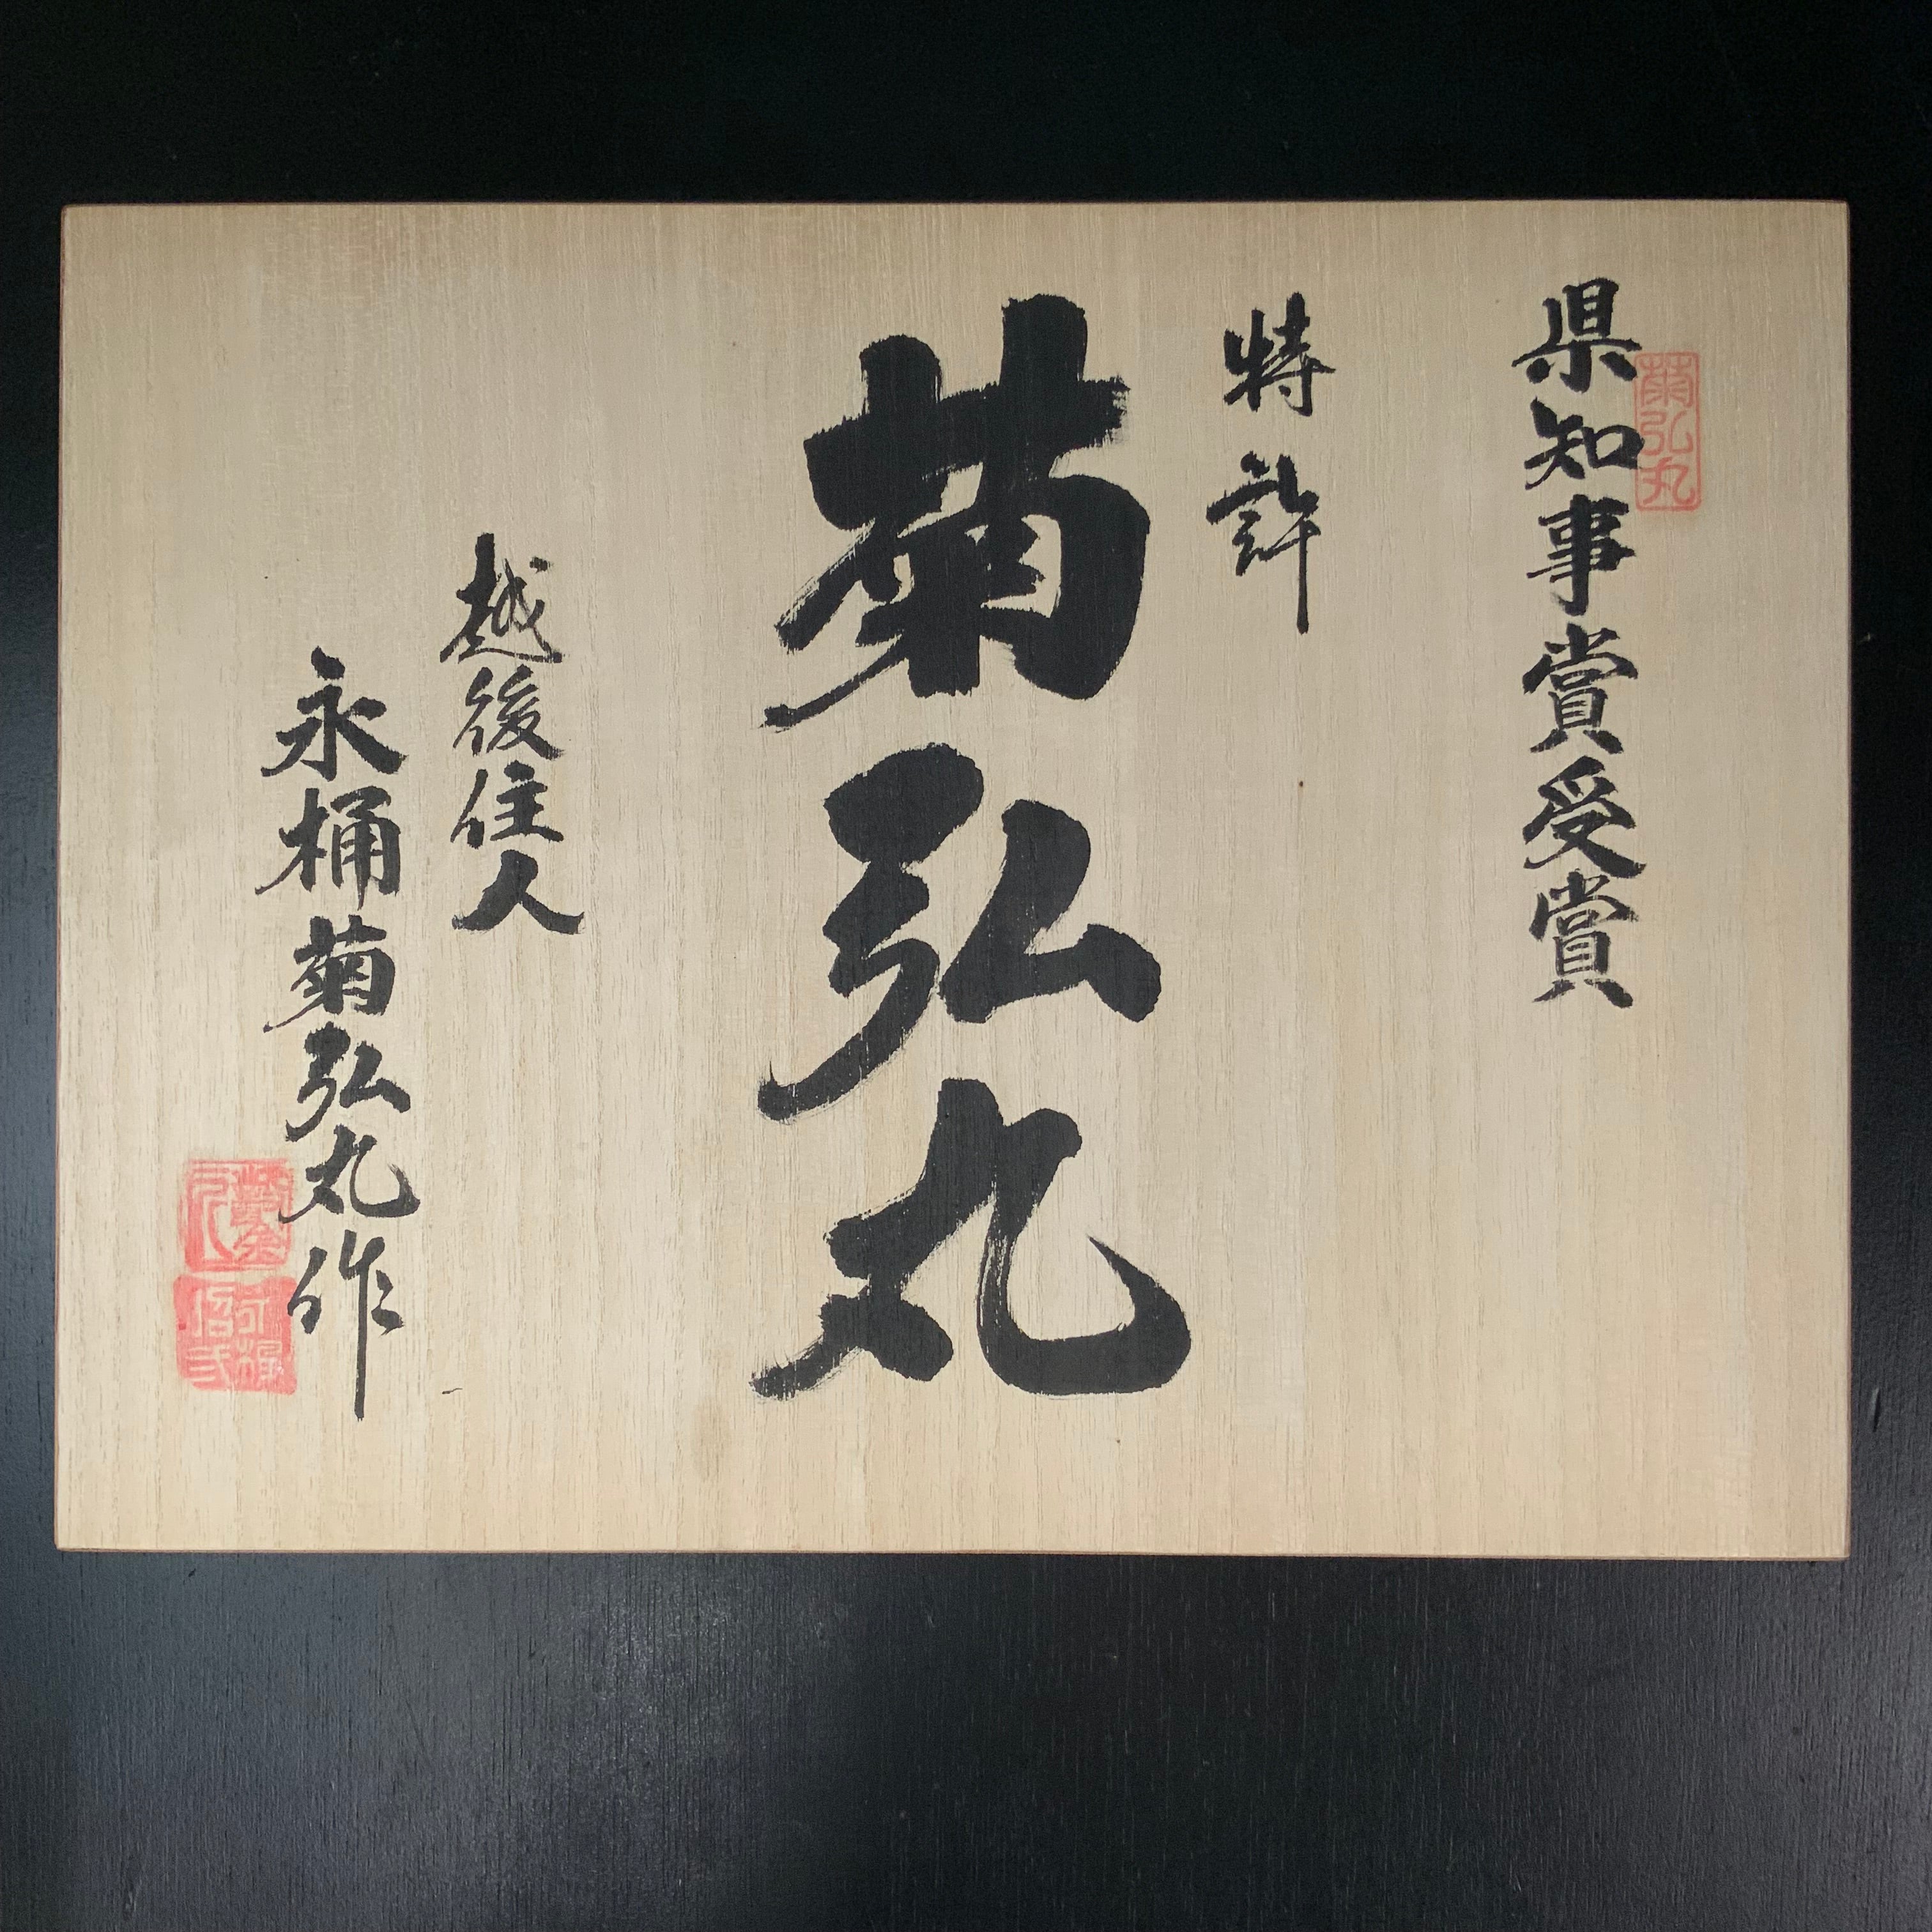 県知事賞受賞
菊弘丸
特許
菊弘丸
越後住人
永桶菊弘丸作